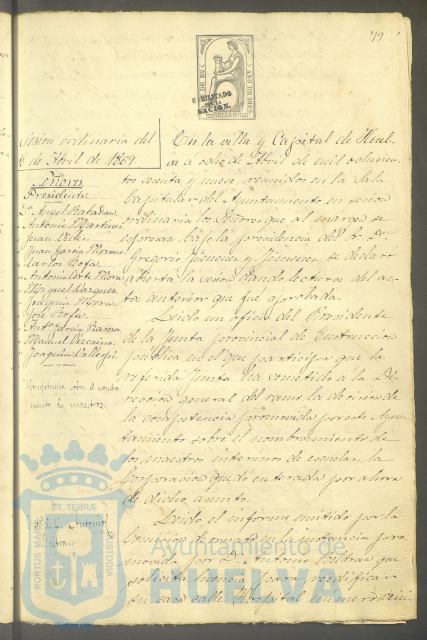 79
HABILITADO
POR LA
NACION.
Sesion ordinaria del
8 de Abril de 1869.
Señores
Presidente
Dn Angel Baladan
Antonio Martinez
Juan
Juan Garcia Moreno
Carlos Rofa
Antonio Corte Mora
Miguel Vazquez
Joaquin
José Rofa
Anto Garcia Ramos
Manuel Vizcaino
Joaquin Vallejo
Competencia sobre el nombra
miento de maestros.
En la villa y Capital de Huel-
va a ocho de Abril de mil ochocien-
tos sesenta y nueve, reunidos en la Sala
Capitular del Ayuntamiento en sesion
ordinaria los Señores que al margen se
espresan bajo la presidencia del Sr. D.
Gregorio Jimenez y Jimenez se declaró
abierta la sesion dando lectura del ac-
ta anterior que fue aprobada.
Leido un oficio del Presidente
de la Junta provincial de Instruccion
pública en el que participa que la
referida Junta ha sometido á la Di-
reccion general del ramo la decision de
la competencia promovida por este Ayun-
tamiento sobre el nombramiento de
los maestros interinos de escuelas, la
Corporacion quedó enterada por ahora
de dicho asunto.
Leido el informe emitido por la
Comision de ornato en la instancia pro-
movida por D. Antonio Beltran que
solicita licencia para reedificar
su casa calle Hospital número
PORTUS MARIS ET TERRÆ CUSTODIA
Ayuntamiento de
HUELVA